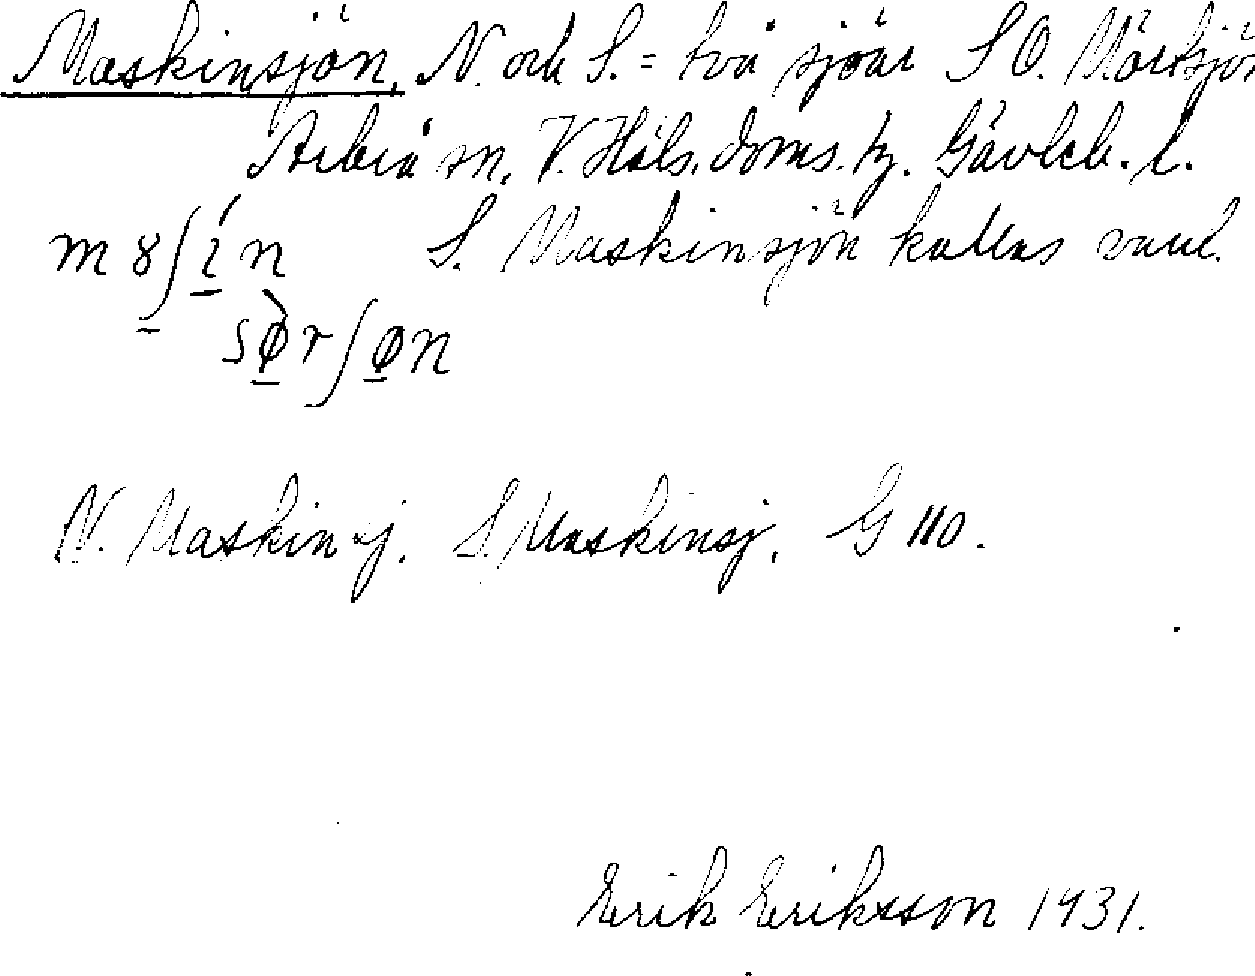 Maskinsjön, N. och S. = två sjöar SO. Mörtsjön
Arbrå sn, V. Häls. doms. tg. Gävleb. l.
S. Maskinsjön kallas vard.
m ɤ ʃ í n
s ø̀ r ʃ ø n
N. Maskinsj. S. Maskinsj. G 110.
Erik Eriksson 1931.